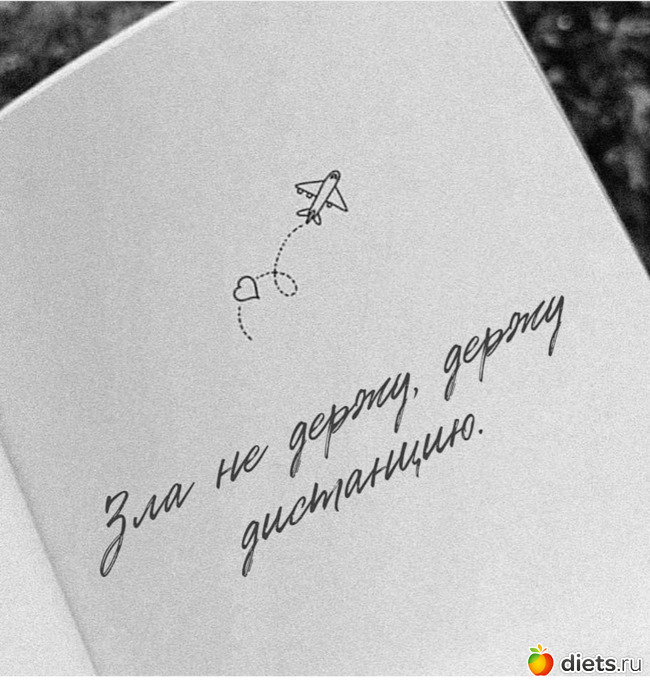 Зла не держу, держу
дистанцию.
diets.ru